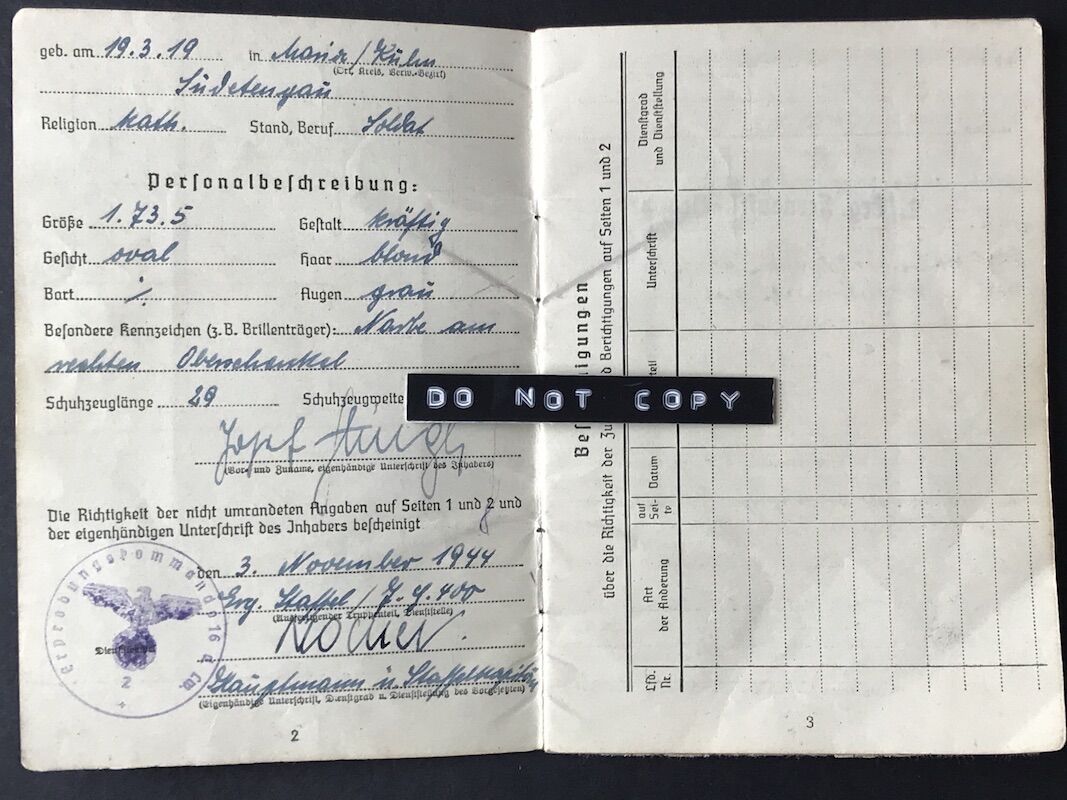 geb. am 19.3.19 in Maria/Kulm
(Ort, Kreis, Verw.-Bezirt)
Sudetengau
Religion kath. Stand, Beruf Soldat
Personalbeschreibung:
Größe 1.73.5 Gestalt kräftig
Gesicht oval Haar blond
Bart ./. Augen grau
Besondere Kennzeichen (z.B. Brillenträger): Narbe am
rechten Oberschenkel
Schuhzeuglänge 29 Schuhzeugweite
Josef
(Vor- und Zuname, eigenhändige Unterschrift des Inhabers)
Die Richtigkeit der nicht umrandeten Angaben auf Seiten 1 und 2 und
der eigenhändigen Unterschrift des Inhabers bescheinigt
den 3. November 1944
Erg. Staffel / J.G. 400
(Ausfertigender Truppenteil, Dienststelle)
Hauptmann u. Staffelkapitän
(Eigenhändige Unterschrift, Dienstgrad u. Dienststellung des Vorgesetzten)
Erprobungskommando 16 d. Lw.
2
2
DO NOT COPY
Bes igungen
über die Richtigkeit der Zu d Berichtigungen auf Seiten 1 und 2
Dienstgrad
und Dienststellung
Unterschrift
teil
Datum
auf
Sei-
te
Art
der Änderung
Lfd.
Nr.
3